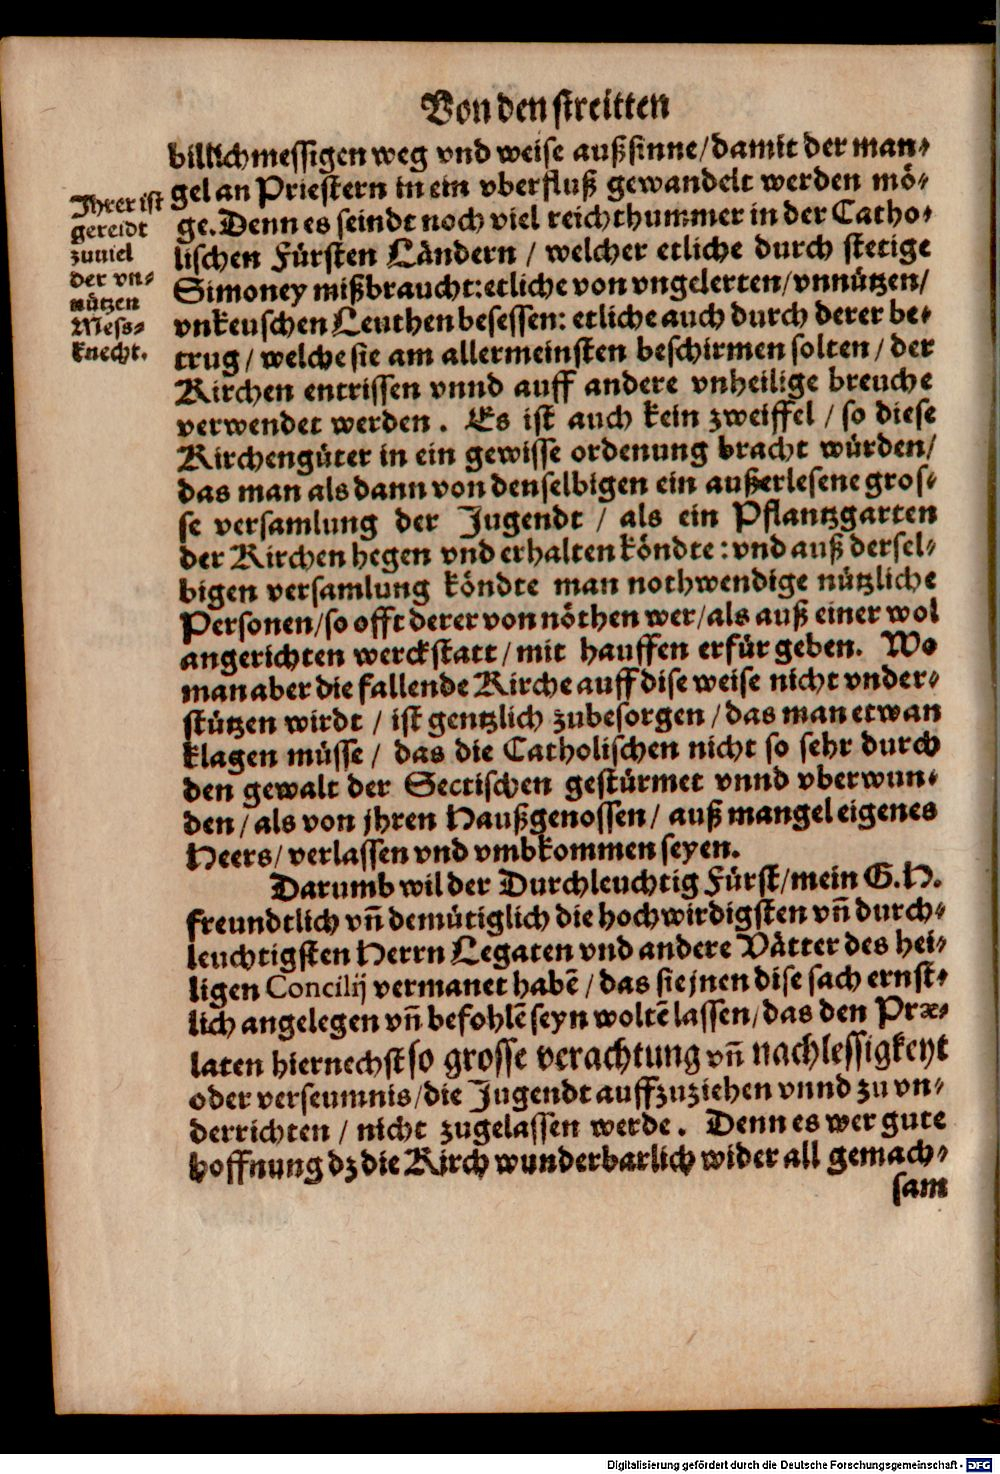 Von den streitten
billichmessigen weg vnd weise außsinne/damit der man-
gel an Priestern in ein vberfluß gewandelt werden mö-
ge. Denn es seindt noch viel reichthummer in der Catho-
lischen Fürsten Ländern / welcher etliche durch stetige
Simoney mißbraucht: etliche von vngelerten/vnnützen/
vnkeuschen Leuthen besessen: etliche auch durch derer be-
trug / welche sie am allermeinsten beschirmen solten / der
Kirchen entrissen vnnd auff andere vnheilige breuche
verwendet werden. Es ist auch kein zweiffel / so diese
Kirchengüter in ein gewisse ordenung bracht würden/
das man als dann von denselbigen ein außerlesene gros-
se versamlung der Jugendt / als ein Pflantzgarten
der Kirchen hegen vnd erhalten köndte: vnd auß dersel-
bigen versamlung köndte man nothwendige nützliche
Personen/so offt derer von nöthen wer/als auß einer wol
angerichten werckstatt/mit hauffen erfür geben. Wo
man aber die fallende Kirche auff dise weise nicht vnder-
stützen wirdt / ist gentzlich zubesorgen / das man etwan
klagen müsse / das die Catholischen nicht so sehr durch
den gewalt der Sectischen gestürmet vnnd vberwun-
den / als von jhren Haußgenossen / auß mangel eigenes
Heers/ verlassen vnd vmbkommen seyen.
Darumb wil der Durchleuchtig Fürst/mein G. H.
freundtlich vñ demütiglich die hochwirdigsten vñ durch-
leuchtigsten Herrn Legaten vnd andere Vätter des hei-
ligen Concilij vermanet habẽ / das sie jnen dise sach ernst-
lich angelegen vñ befohlẽ seyn woltẽ lassen/das den Præ-
laten hiernechst so grosse verachtung vñ nachlessigkeyt
oder verseumnis/die Jugendt auffzuziehen vnnd zu vn-
derrichten / nicht zugelassen werde. Denn es wer gute
hoffnung dz die Kirch wunderbarlich wider all gemach-
sam
Jhrer ist
gereidt
zuuiel
der vn-
nützen
Mess-
knecht.
Digitalisierung gefördert durch die Deutsche Forschungsgemeinschaft - DFG